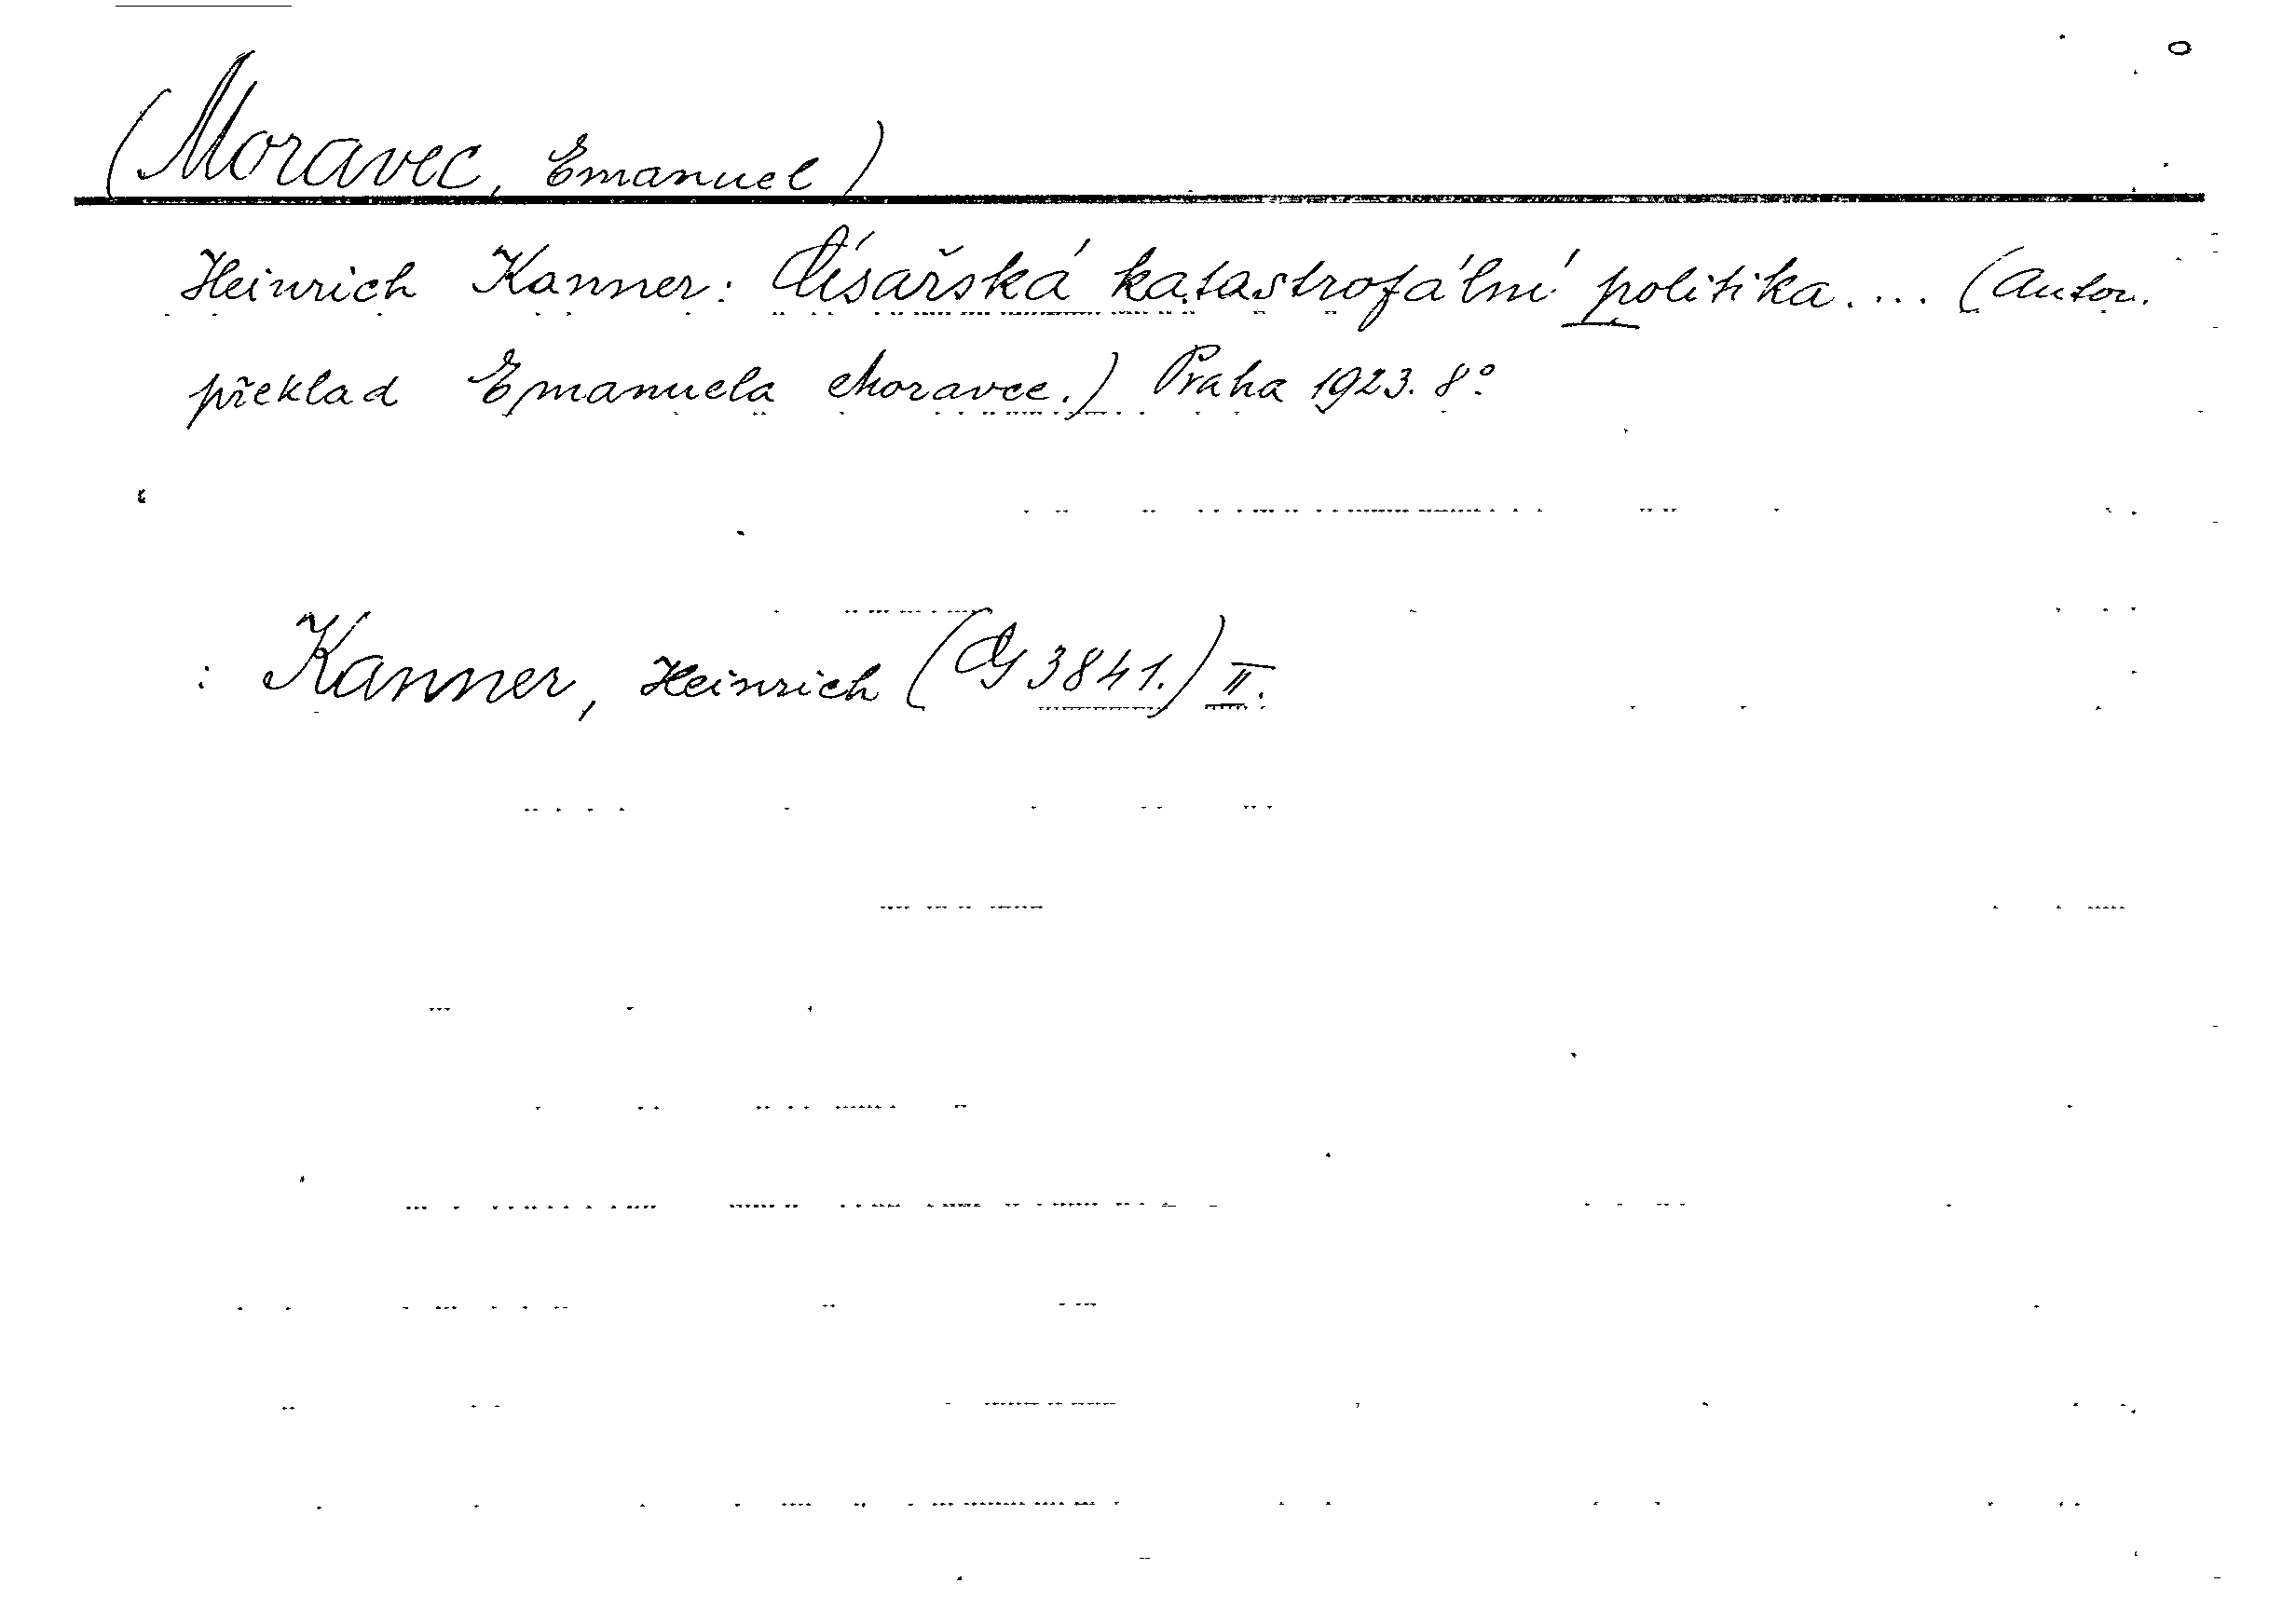 (Moravec, Emanuel)
Heinrich Kanner: Císařská katastrofální politika.... (Autor.
překlad Emanuela Moravce.) Praha 1923. 8°
: Kanner, Heinrich (Cg 3841.) II.